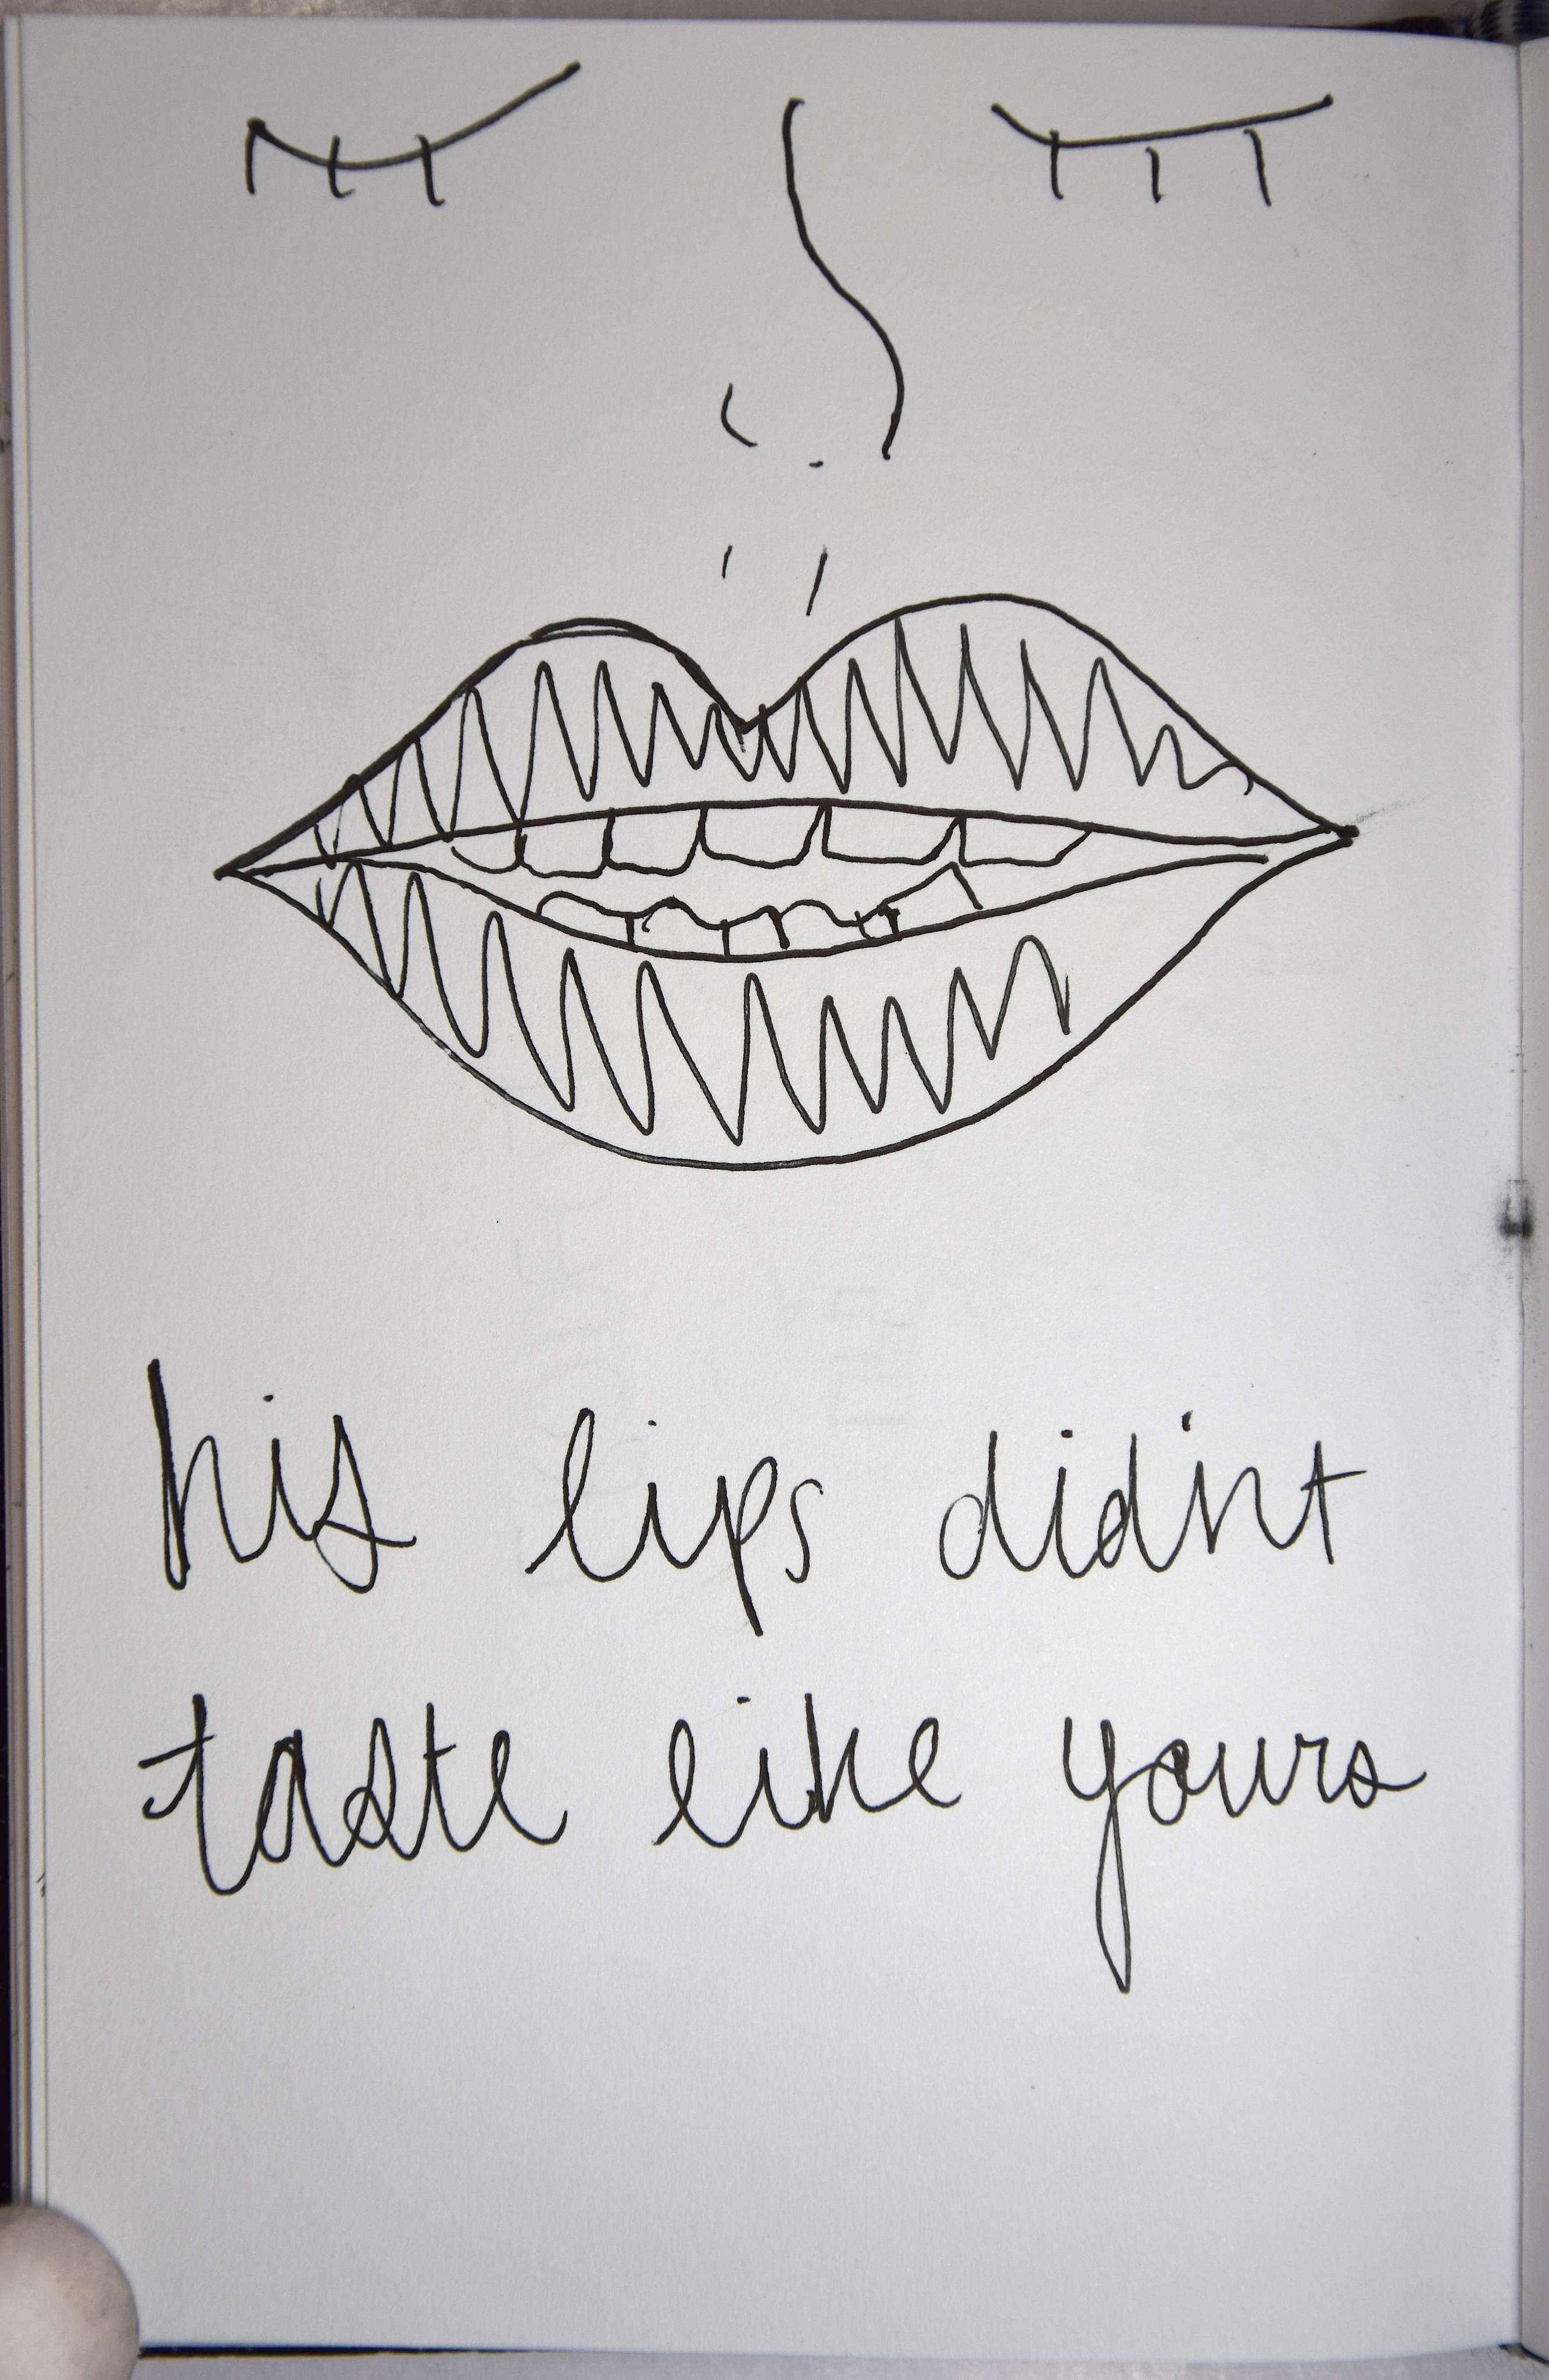 his lips didn't
taste like yours